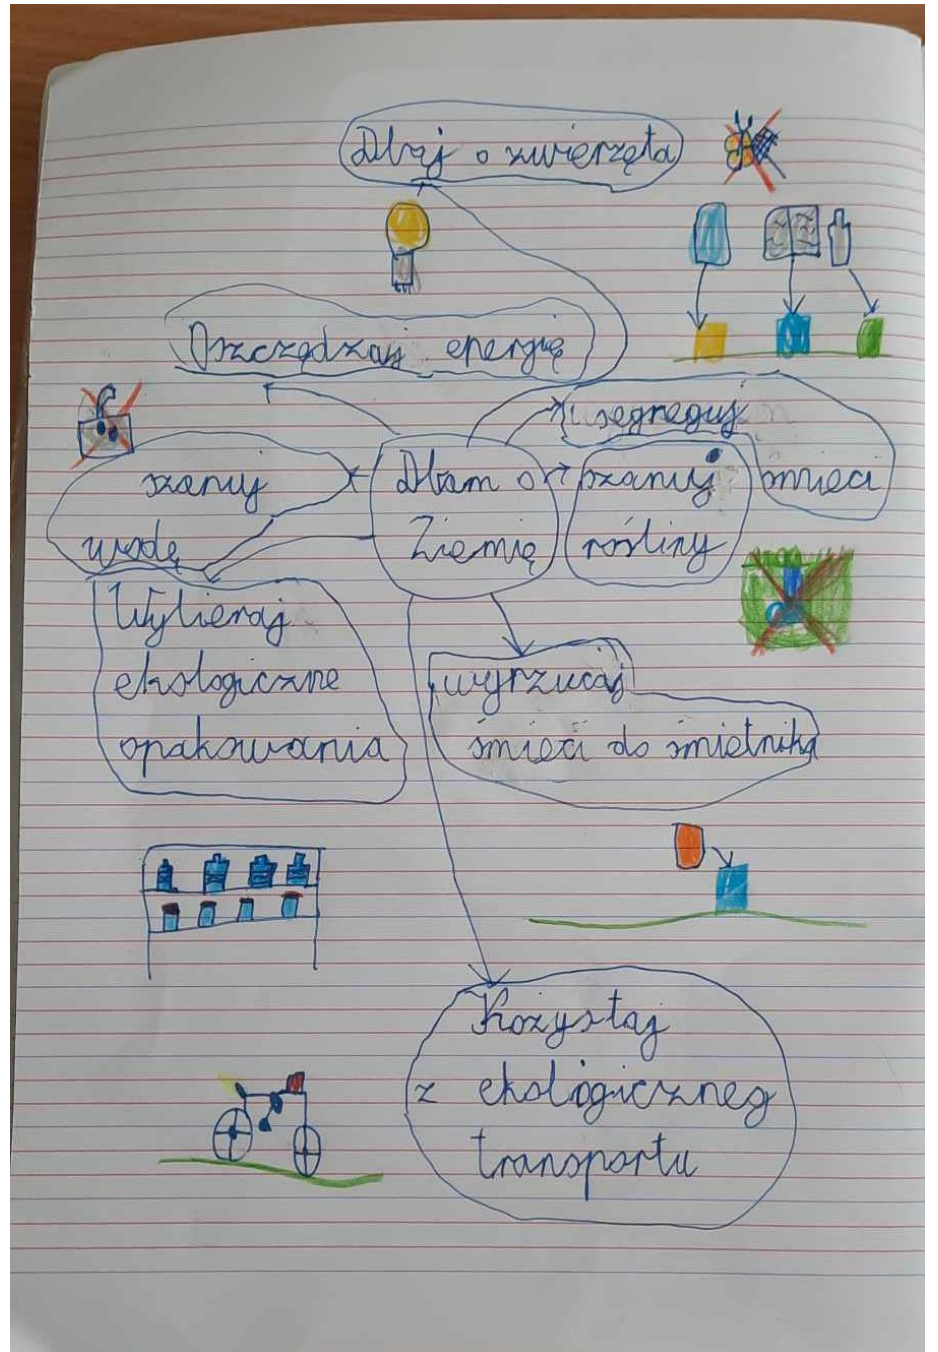 Dbaj o zwierzęta
Oszczędzaj energię
segreguj
śmieci
szanuj
wodę
Dbam o
Ziemię
szanuj
rośliny
Wybieraj
ekologiczne
opakowania
wyrzucaj
śmieci do śmietnika
Kożystaj
z ekologiczneg
transportu